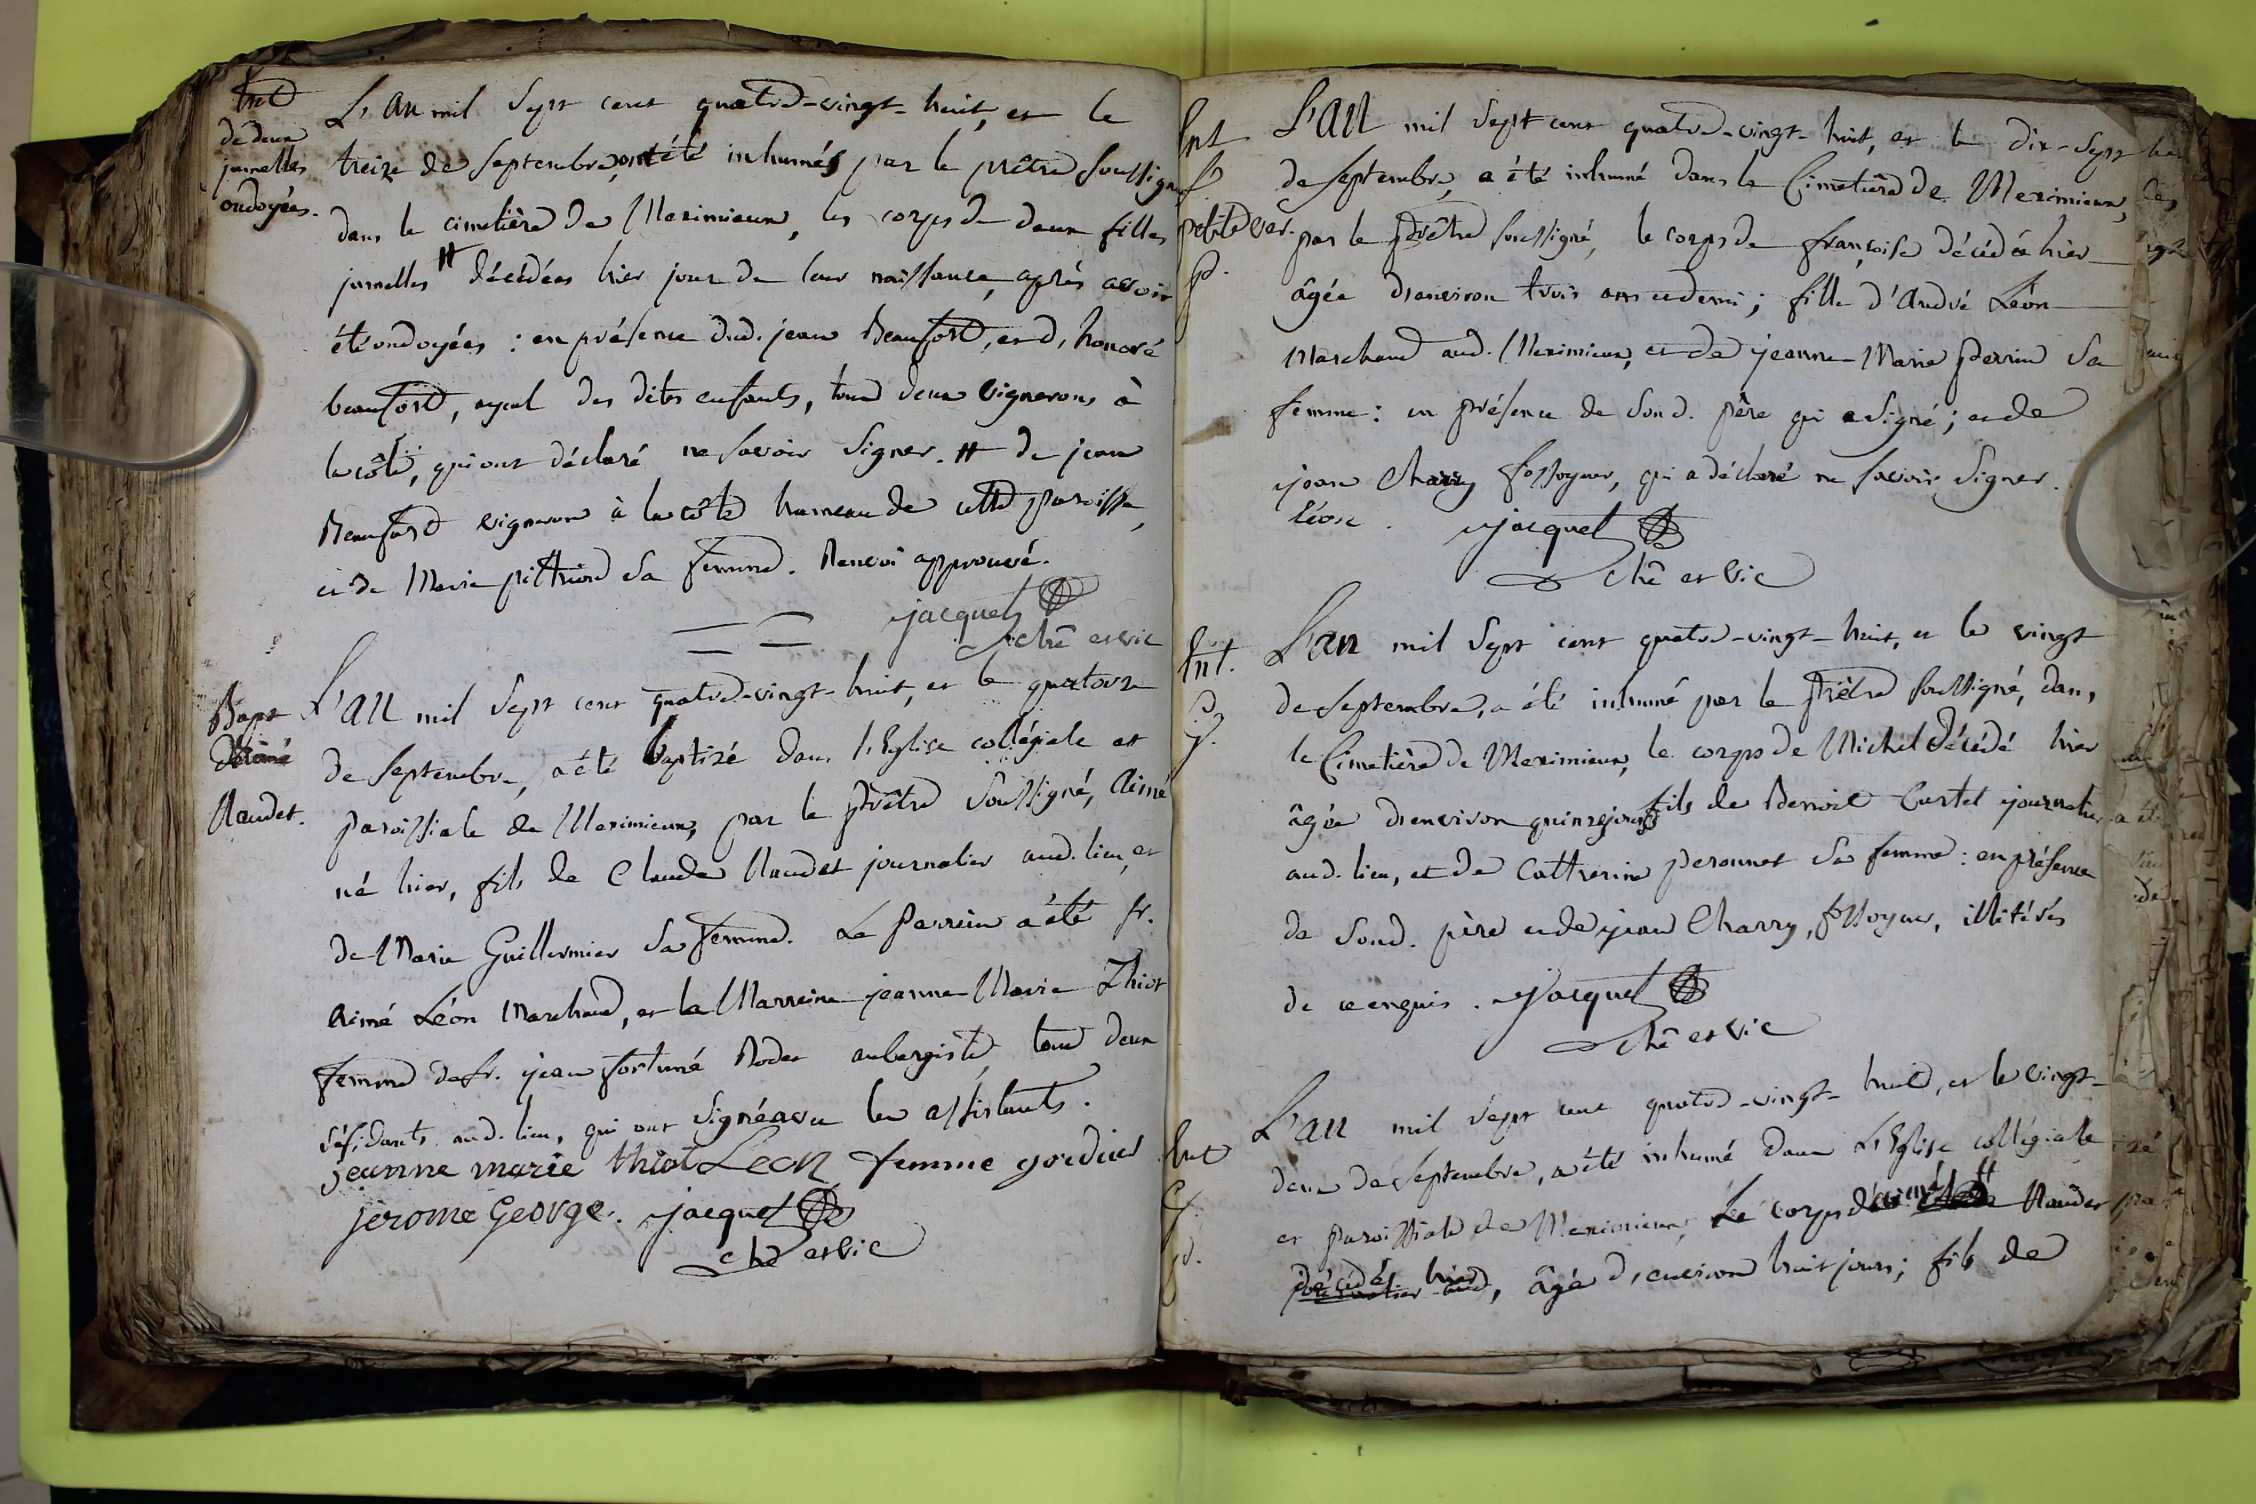 Ent
de deux
jumelles
ondoyées.
L'an mil Sept cent quatre-vingt-huit, et le
treize de Septembre, ont été inhumés par le prêtre soussigné
dans le cimetière de Meximieux, les corps de deux filles
jumelles # décédées hier jour de leur naissance, après avoir
été ondoyées : en présence dud. jean Beaufort, et d'honoré
beaufort, ayeul des dites enfants, tous deux vignerons à
la côte, qui ont déclaré ne savoir signer. # de jean
Beaufort vigneron à la côte hameau de cette paroisse,
et de Marie pitthiod sa femme. Renvoi approuvé.
jacquet
che et vic
Bapt
d'aimé
Naudet.
L'an mil Sept cent quatre-vingt-huit, et le quatorze
de Septembre, a été baptizé dans l'Eglise collégiale et
paroissiale de Meximieux, par le prêtre soussigné, Aimé
né hier, fils de Claude Naudet journalier aud. lieu, et
de Marie Guillermier sa femme. Le Parrein a été fr.
Aimé Léon Marchand, et la Marreine jeanne-Marie Thiot
femme de fr. jean fortuné Rodet aubergiste, tous deux
résidants aud. lieu, qui ont signé avec les assistants.
jeanne marie thiot Leon femme gordier
jerome George. jacquet
che et vic
Ent
f.
petit ver.
p.
L'an mil Sept cent quatre-vingt-huit, et le dix-sept
de Septembre, a été inhumé dans le Cimetière de Meximieux,
par le prêtre soussigné, le corps de françoise décédée hier
âgée d'environ trois ans et demi ; fille d'André Léon
Marchand aud. Meximieux, et de jeanne-Marie Perrin sa
femme : en présence de sond. père qui a signé ; et de
jean Charry fossoyeur, qui a déclaré ne savoir signer.
Léon. jacquet
che et vic
Ent.
p.
L'an mil Sept cent quatre-vingt-huit, et le vingt
de Septembre, a été inhumé par le prêtre soussigné, dans
le Cimetière de Meximieux, le corps de Michel décédé hier
âgée d'environ quinze jours fils de Benoit Curtet journalier
aud. lieu, et de Catherine peronnet sa femme : en présence
de sond. père et de jean Charry, fossoyeur, illitérés
de ce enquis. jacquet
che et vic
Ent
p.
L'an mil Sept cent quatre-vingt-huit, et le vingt-
deux de Septembre, a été inhumé dans L'Eglise collégiale
et paroissiale de Meximieux, Le corps d'aimé # Naudet
décédé hier, âgé d'environ huit jours ; fils de